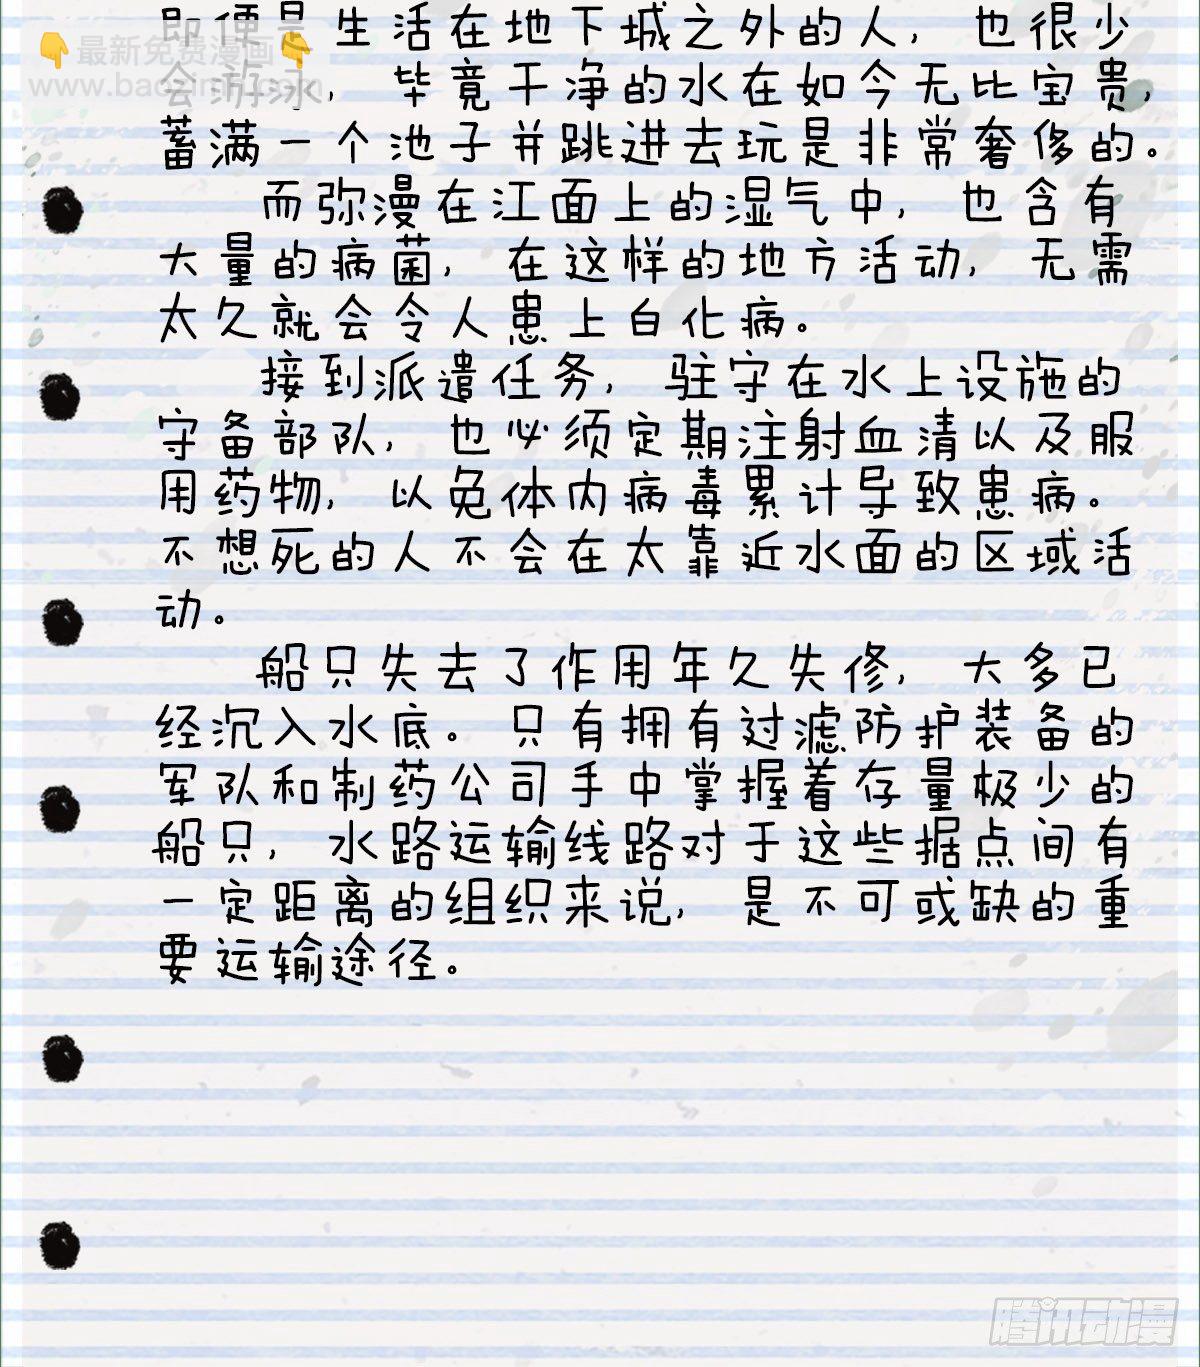 即便是生活在地下城之外的人，也很少
👇最新免费漫画👇
会游泳，毕竟干净的水在如今无比宝贵，
蓄满一个池子并跳进去玩是非常奢侈的。
而弥漫在江面上的湿气中，也含有
大量的病菌，在这样的地方活动，无需
太久就会令人患上白化病。
接到派遣任务，驻守在水上设施的
守备部队，也必须定期注射血清以及服
用药物，以免体内病毒累计导致患病。
不想死的人不会在太靠近水面的区域活
动。
船只失去了作用年久失修，大多已
经沉入水底。只有拥有过滤防护装备的
军队和制药公司手中掌握着存量极少的
船只，水路运输线路对于这些据点间有
一定距离的组织来说，是不可或缺的重
要运输途径。
腾讯动漫